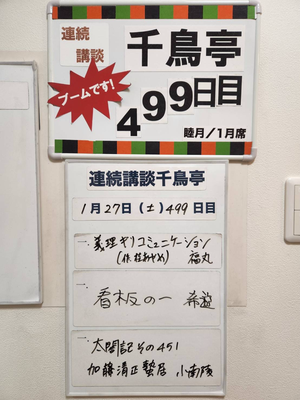 連続
講談
千鳥亭
ブームです!
499日目
睦月/1月席
連続講談千鳥亭
1月27日(土)499日目
一. 義理ギリコミュニケーション
(作.桂あやめ) 福丸
一. 看板の一 希遊
一. 太閤記その451
加藤清正蟄居 小南陵